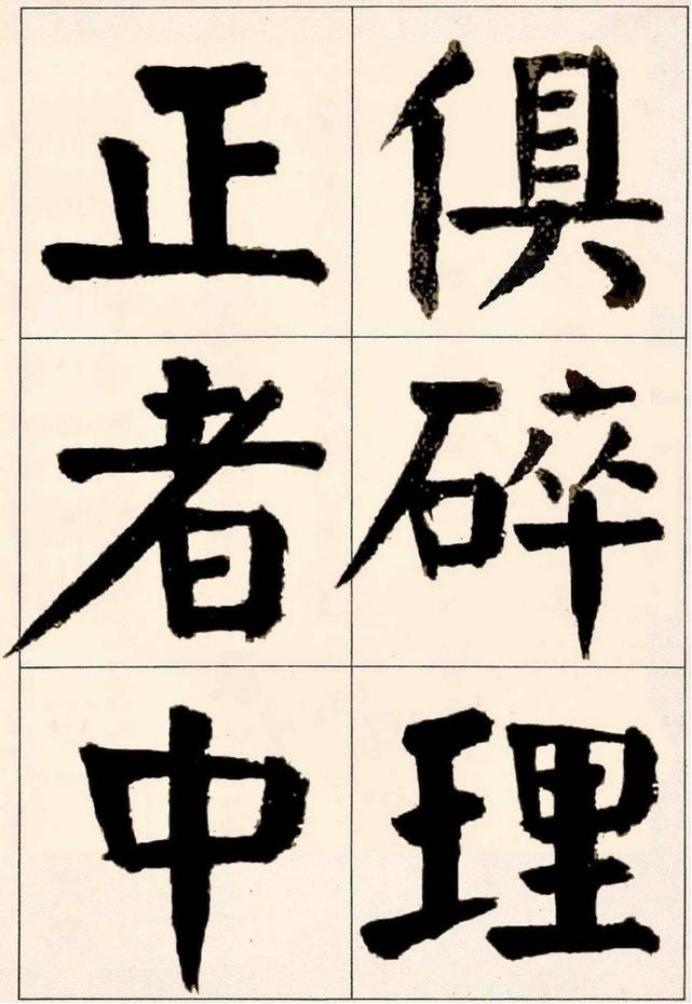 俱碎理
正者中